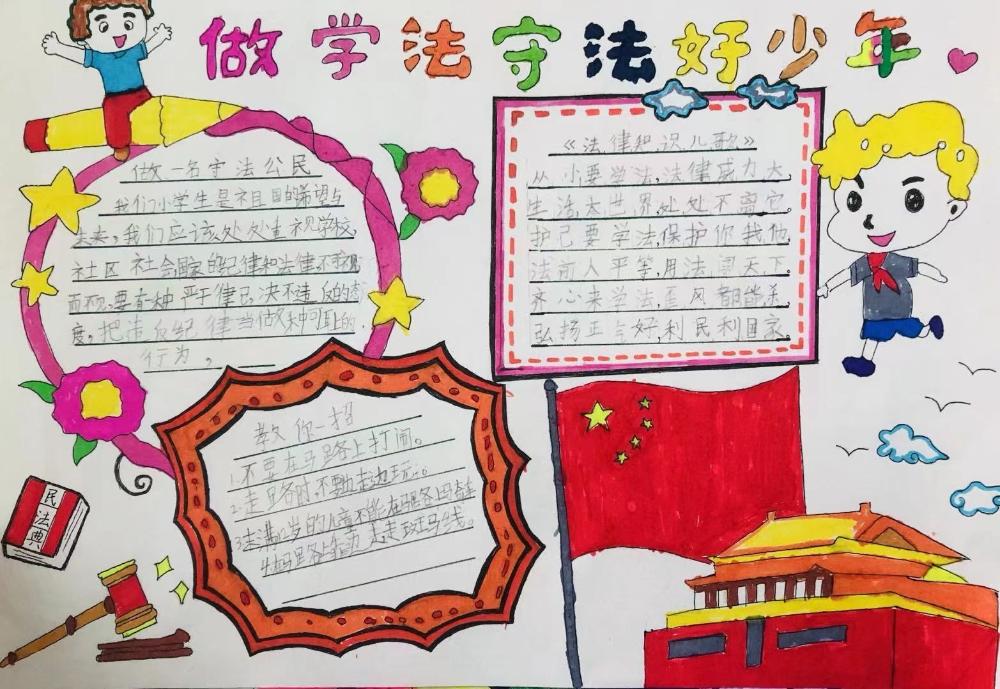 做学法守法好少年
做一名守法公民
我们小学生是祖国的希望与
未来。我们应该处处重视学校,
社区 社会国家的纪律和法律。不要视
而不视。要有一种 严于律已,决不违反的态
度。把违反纪律当做
行为。
《法律知识儿歌》
从小要学法,法律威力大
生活大世界,处处不离它。
护己要学法,保护你我他
法前人平等,用法闯天下。
齐心来学法,歪风都能杀,
弘扬正气好,利民利国家。
教你一招
1.不要在马路上打闹。
2.走路时,不要边走边玩。
3.未满12岁的儿童不能在马路
斑马线。
民法典